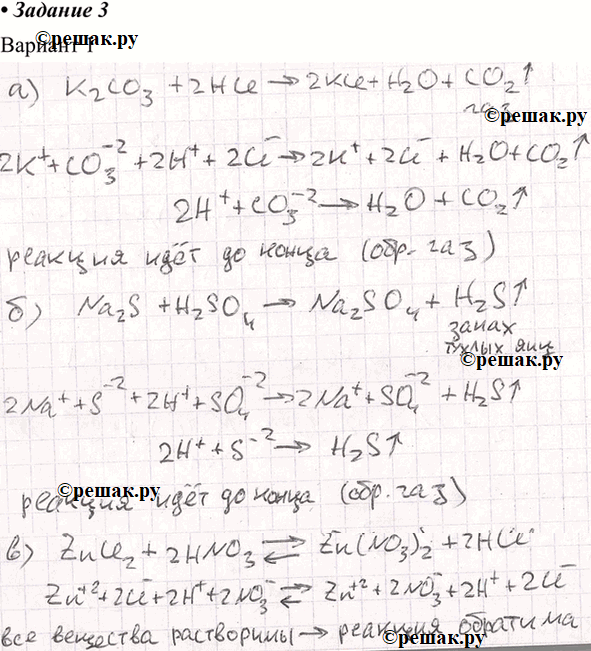 • Задание 3
©решак.ру
Вариант 1
а) K₂CO₃ + 2HCl → 2KCl + H₂O + CO₂↑
газ
©решак.ру
2K⁺ + CO₃⁻² + 2H⁺ + 2Cl⁻ → 2K⁺ + 2Cl⁻ + H₂O + CO₂↑
2H⁺ + CO₃⁻² → H₂O + CO₂↑
реакция идёт до конца (обр. газ)
б) Na₂S + H₂SO₄ → Na₂SO₄ + H₂S↑
запах
тухлых яиц
©решак.ру
2Na⁺ + S⁻² + 2H⁺ + SO₄⁻² → 2Na⁺ + SO₄⁻² + H₂S↑
2H⁺ + S⁻² → H₂S↑
©решак.ру
реакция идёт до конца (обр. газ)
в) ZnCl₂ + 2HNO₃ ⇄ Zn(NO₃)₂ + 2HCl
Zn⁺² + 2Cl⁻ + 2H⁺ + 2NO₃⁻ ⇄ Zn⁺² + 2NO₃⁻ + 2H⁺ + 2Cl⁻
все вещества растворимы → реакция обратима
©решак.ру